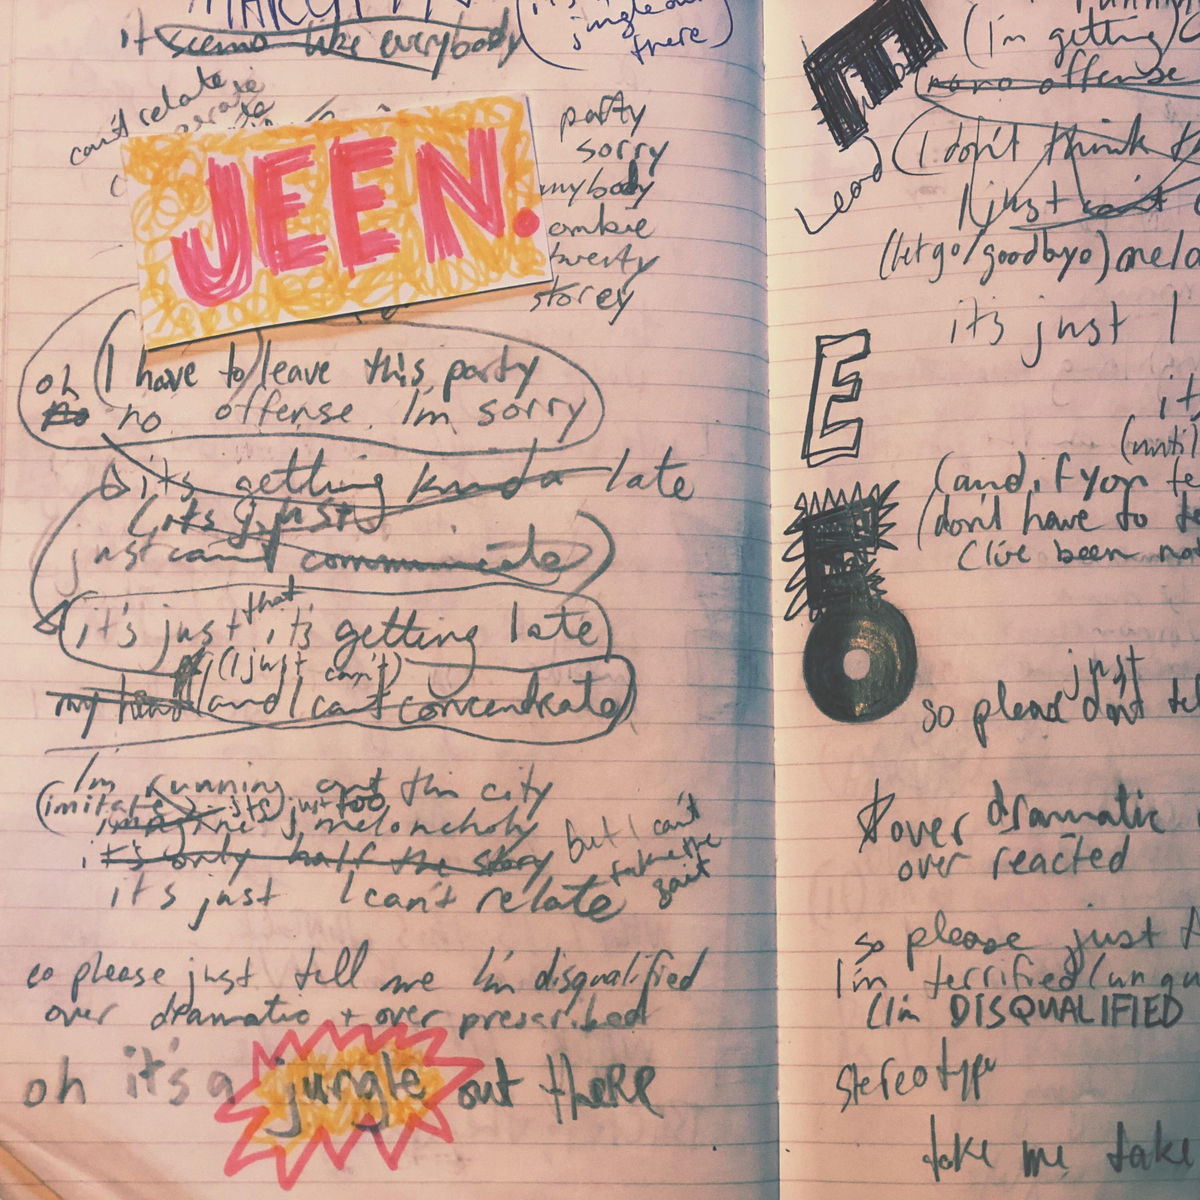 it seems like everybody
jungle out
there)
can't relate
JEEN.
party
sorry
anybody
twenty
storey
oh (I have to) leave this party
no no offense I'm sorry
it's getting kinda late
(it's just
just can't communicate)
it's just that it's getting late
(I just can't)
(and I can't concentrate)
I'm running out this city
(imitate) it's just too
imagine melancholy
it's only half the story but I can't
take the
it's just I can't relate
so please just tell me I'm disqualified
over dramatic + over prescribed
oh it's a jungle out there
(I'm getting)
no no offense
Lead
(I don't think
I just can't
(let go/goodbye)
it's just I
E
it
(until
(and if you
(don't have to
(I've been
just
so please don't
over dramatic
over reacted
so please just
I'm terrified
(I'm DISQUALIFIED
stereotype
take me take